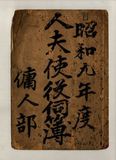 昭和九年度
人夫使役伺簿
傭人部